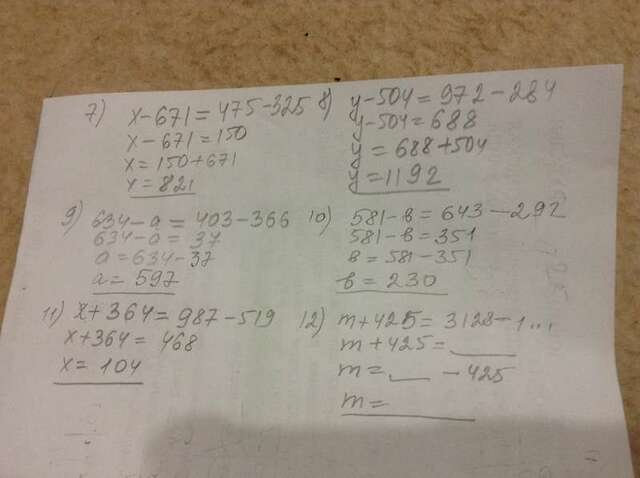 7) x-671=475-325
x-671=150
x=150+671
x=821
8) y-504=972-284
y-504=688
y=688+504
y=1192
9) 634-a=403-366
634-a=37
a=634-37
a=597
10) 581-в=643-292
581-в=351
в=581-351
в=230
11) x+364=987-519
x+364=468
x=104
12) m+425=3128-1...
m+425=___
m=__-425
m=